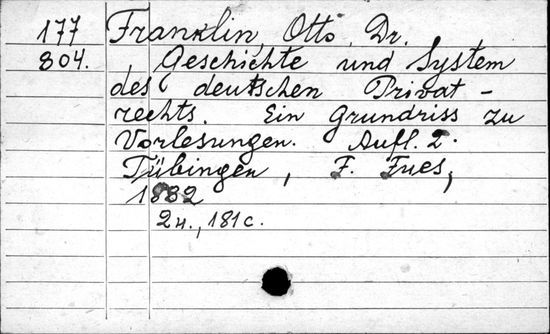 177 Franklin, Otto, Dr.
804. Geschichte und System
des deutschen Privat-
rechts. Ein Grundriss zu
Vorlesungen. Aufl. 2.
Tübingen, F. Fues,
1882
2н., 181 с.